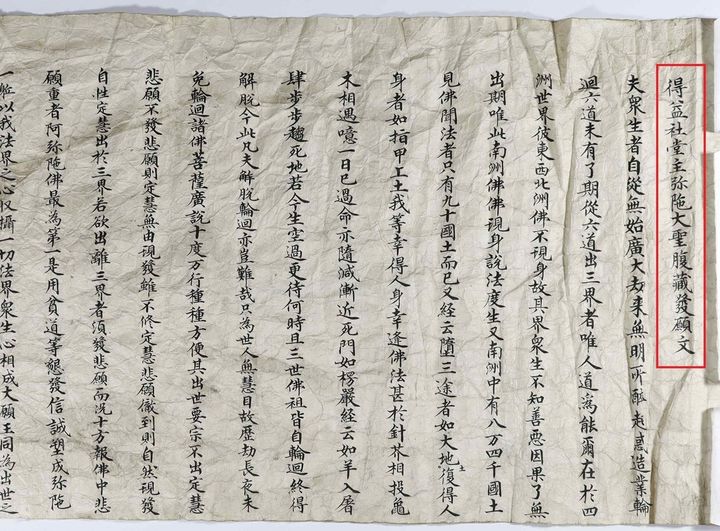 得益社堂主弥陁大聖腹藏發願文
夫衆生者自從無始廣大劫来無明所醉起惑造業輪
迴六道未有了期從六道出三界者唯人道爲能爾在於四
洲世界彼東西北洲佛不現身故其界衆生不知善惡因果了無
出期唯此南洲佛佛現身說法度生又南洲中有八万四千國土
見佛聞法者只有九十國土而已又經云墮三途者如大地土復得人
身者如指甲上土我等幸得人身幸逢佛法甚於針芥相投龜
木相遇噫一日已過命亦隨减漸近死門如楞嚴經云如羊入屠
肆步步趨死地若今生空過更待何時且三世佛祖皆自輪迴終得
解脫今此凡夫解脫輪迴亦豈難哉只為世人無慧目故歷劫長夜未
免輪迴諸佛菩薩廣說十度万行種種方便其出世要宗不出定慧
悲願不發悲願則定慧無由現發雖不修定慧悲願儆到則自然現發
自性定慧出於三界若欲出離三界者須發悲願而况十方報佛中悲
願重者阿弥陁佛最為第一是用貧道等懇發信誠塑成弥陁
一軀以我法界之心仅攝一切法界衆生心相成大願王同為出世之